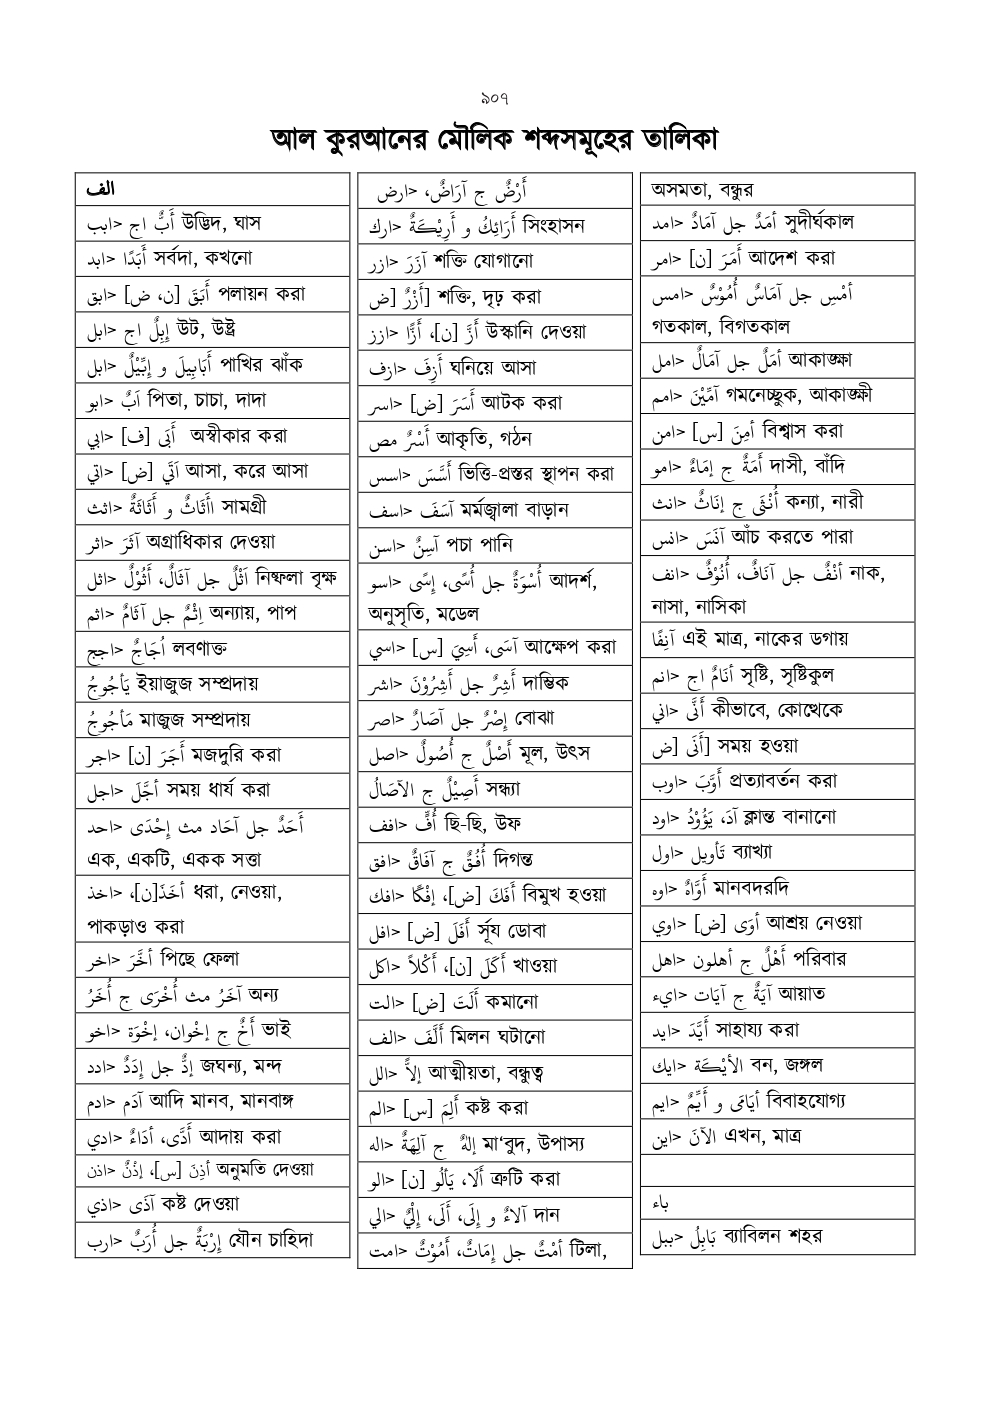 ৯০৭
আল কুরআনের মৌলিক শব্দসমূহের তালিকা
الف
ابب> أَبٌّ اج উদ্ভিদ, ঘাস
ابد> أَبَدًا সর্বদা, কখনো
ابق> أَبَقَ [ن، ض] পলায়ন করা
ابل> إِبِلٌ اج উট, উষ্ট্র
ابل> أَبَابِيلَ و إِبِّيْلٌ পাখির ঝাঁক
ابو> اَبٌ পিতা, চাচা, দাদা
ابي> أَبَى [ف] অস্বীকার করা
اتي> اَتَي [ض] আসা, করে আসা
اثث> اأَثَاثٌ و أَثَاثَةٌ সামগ্রী
اثر> آثَرَ অগ্রাধিকার দেওয়া
اثل> اَثْلٌ جل آثَالٌ، أَثُوْلٌ নিষ্ফলা বৃক্ষ
اثم> إِثْمٌ جل آثَامٌ অন্যায়, পাপ
اجج> أُجَاجٌ লবণাক্ত
يَأجُوجُ ইয়াজুজ সম্প্রদায়
مَأجُوجُ মাজুজ সম্প্রদায়
اجر> أَجَرَ [ن] মজদুরি করা
اجل> أجَّلَ সময় ধার্য করা
احد> أَحَدٌ جل آحَاد مث إِحْدَى
এক, একটি, একক সত্তা
اخذ> أخَذَ[ن]، ধরা, নেওয়া,
পাকড়াও করা
اخر> أخَّرَ পিছে ফেলা
آخَرُ مث أُخْرَى ج أُخَرُ অন্য
اخو> أَخٌ ج إخْوان، إخْوَة ভাই
ادد> إدٌّ جل إِدَدٌ জঘন্য, মন্দ
ادم> آدَم আদি মানব, মানবাঙ্গ
ادي> أَدَّى، أدَاءٌ আদায় করা
اذن> أذِنَ [س]، إذْنٌ অনুমতি দেওয়া
اذي> آذَى কষ্ট দেওয়া
ارب> إِرْبَةٌ جل أُرَبٌ যৌন চাহিদা
ارض> أَرْضٌ ج آرَاضٌ،
ارك> أَرَائِكُ و أَرِيْكَةٌ সিংহাসন
ازر> آزَرَ শক্তি যোগানো
أَزْرٌ [ض] শক্তি, দৃঢ় করা
ازز> أَزَّ [ن]، أَزًّا উস্কানি দেওয়া
ازف> أَزِفَ ঘনিয়ে আসা
اسر> أَسَرَ [ض] আটক করা
أَسْرٌ مص আকৃতি, গঠন
اسس> أَسَّسَ ভিত্তি-প্রস্তর স্থাপন করা
اسف> آسَفَ মর্মজ্বালা বাড়ান
اسن> آسِنٌ পচা পানি
اسو> أُسْوَةٌ جل أُسًى، إِسًى আদর্শ,
অনুসৃতি, মডেল
اسي> آسَى، أَسِيَ [س] আক্ষেপ করা
اشر> أَشِرٌ جل أَشِرُوْنَ দাম্ভিক
اصر> إِصْرٌ جل آصَارٌ বোঝা
اصل> أَصْلٌ ج أُصُولٌ মূল, উৎস
أَصِيْلٌ ج الآصَالُ সন্ধ্যা
افف> أُفٍّ ছি-ছি, উফ
افق> أُفُقٌ ج آفَاقٌ দিগন্ত
افك> أَفَكَ [ض]، إفْكًا বিমুখ হওয়া
افل> أَفَلَ [ض] র্সূয ডোবা
اكل> أَكَلَ [ن]، أَكْلاً খাওয়া
الت> أَلَتَ [ض] কমানো
الف> أَلَّفَ মিলন ঘটানো
الل> إلاًّ আত্মীয়তা, বন্ধুত্ব
الم> أَلِمَ [س] কষ্ট করা
اله> إلهٌ ج آلِهَةٌ মা‘বুদ, উপাস্য
الو> أَلَا، يَألُو [ن] ত্রুটি করা
الي> آلاءٌ و إِلَى، أَلَى، إِلْيٌ দান
امت> أمْتٌ جل إِمَاتٌ، أَمُوْتٌ টিলা,
অসমতা, বন্ধুর
امد> أمَدٌ جل آمَادٌ সুদীর্ঘকাল
امر> أَمَرَ [ن] আদেশ করা
امس> أمْسِ جل آمَاسٌ أُمُوْسٌ
গতকাল, বিগতকাল
امل> أمَلٌ جل آمَالٌ আকাঙ্ক্ষা
امم> آمِّيْنَ গমনেচ্ছুক, আকাঙ্ক্ষী
امن> أمِنَ [س] বিশ্বাস করা
امو> أَمَةٌ ج إمَاءٌ দাসী, বাঁদি
انث> أُنْثَى ج إنَاثٌ কন্যা, নারী
انس> آنَسَ আঁচ করতে পারা
انف> أنْفٌ جل آنَافٌ، أُنُوْفٌ নাক,
নাসা, নাসিকা
آنِفًا এই মাত্র, নাকের ডগায়
انم> أنَامٌ اج সৃষ্টি, সৃষ্টিকুল
اني> أَنَّى কীভাবে, কোত্থেকে
أَنَى [ض] সময় হওয়া
اوب> أَوَّبَ প্রত্যাবর্তন করা
اود> آدَ، يَؤُوْدُ ক্লান্ত বানানো
اول> تَأويل ব্যাখ্যা
اوه> أَوَّاهٌ মানবদরদি
اوي> أوَى [ض] আশ্রয় নেওয়া
اهل> أَهْلٌ ج أهلون পরিবার
ايء> آيَةٌ ج آيَات আয়াত
ايد> أَيَّدَ সাহায্য করা
ايك> الأَيْكَة বন, জঙ্গল
ايم> أيَامَى و أَيِّمٌ বিবাহযোগ্য
اين> الآنَ এখন, মাত্র
باء
ببل> بَابِلُ ব্যাবিলন শহর